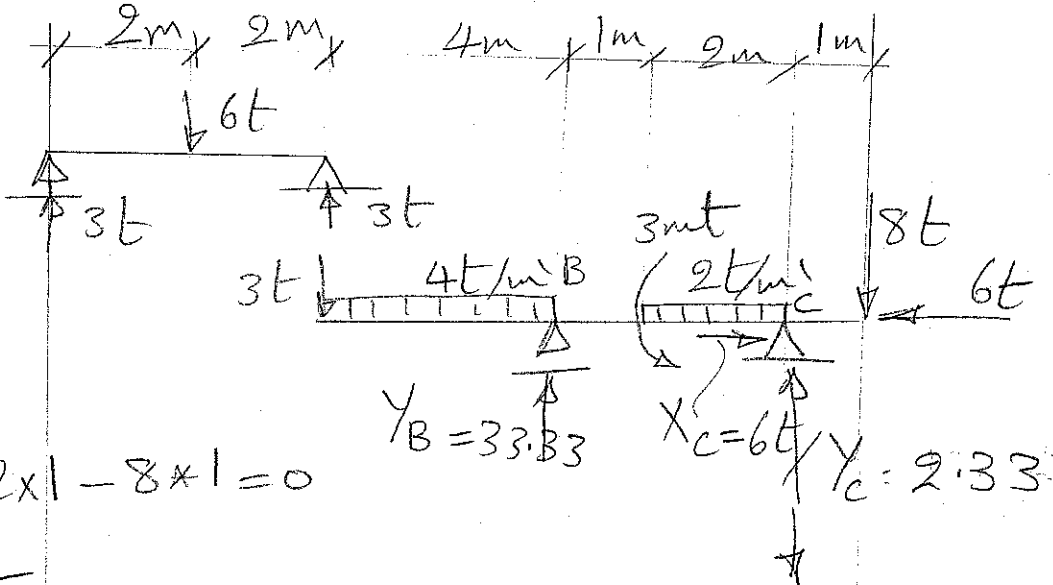 2m 2m 4m 1m 2m 1m
6t
3t 3t
3mt 8t
3t 4t/m' B 2t/m' C 6t
Y_B = 33.33 X_C = 6t Y_C = 2.33
2x1 - 8*1 = 0